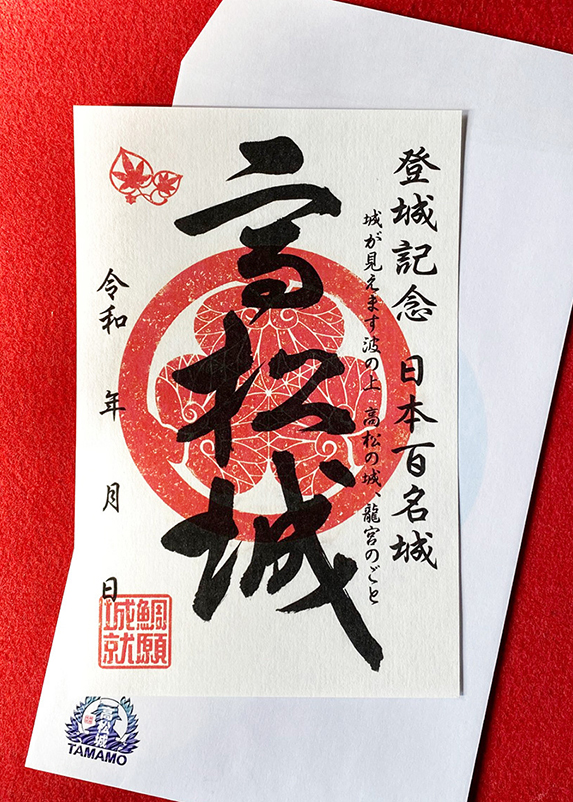 登城記念 日本百名城
城が見えます波の上 高松の城、龍宮のごと
高松城
令和 年 月 日
鯛願城就
TAMAMO